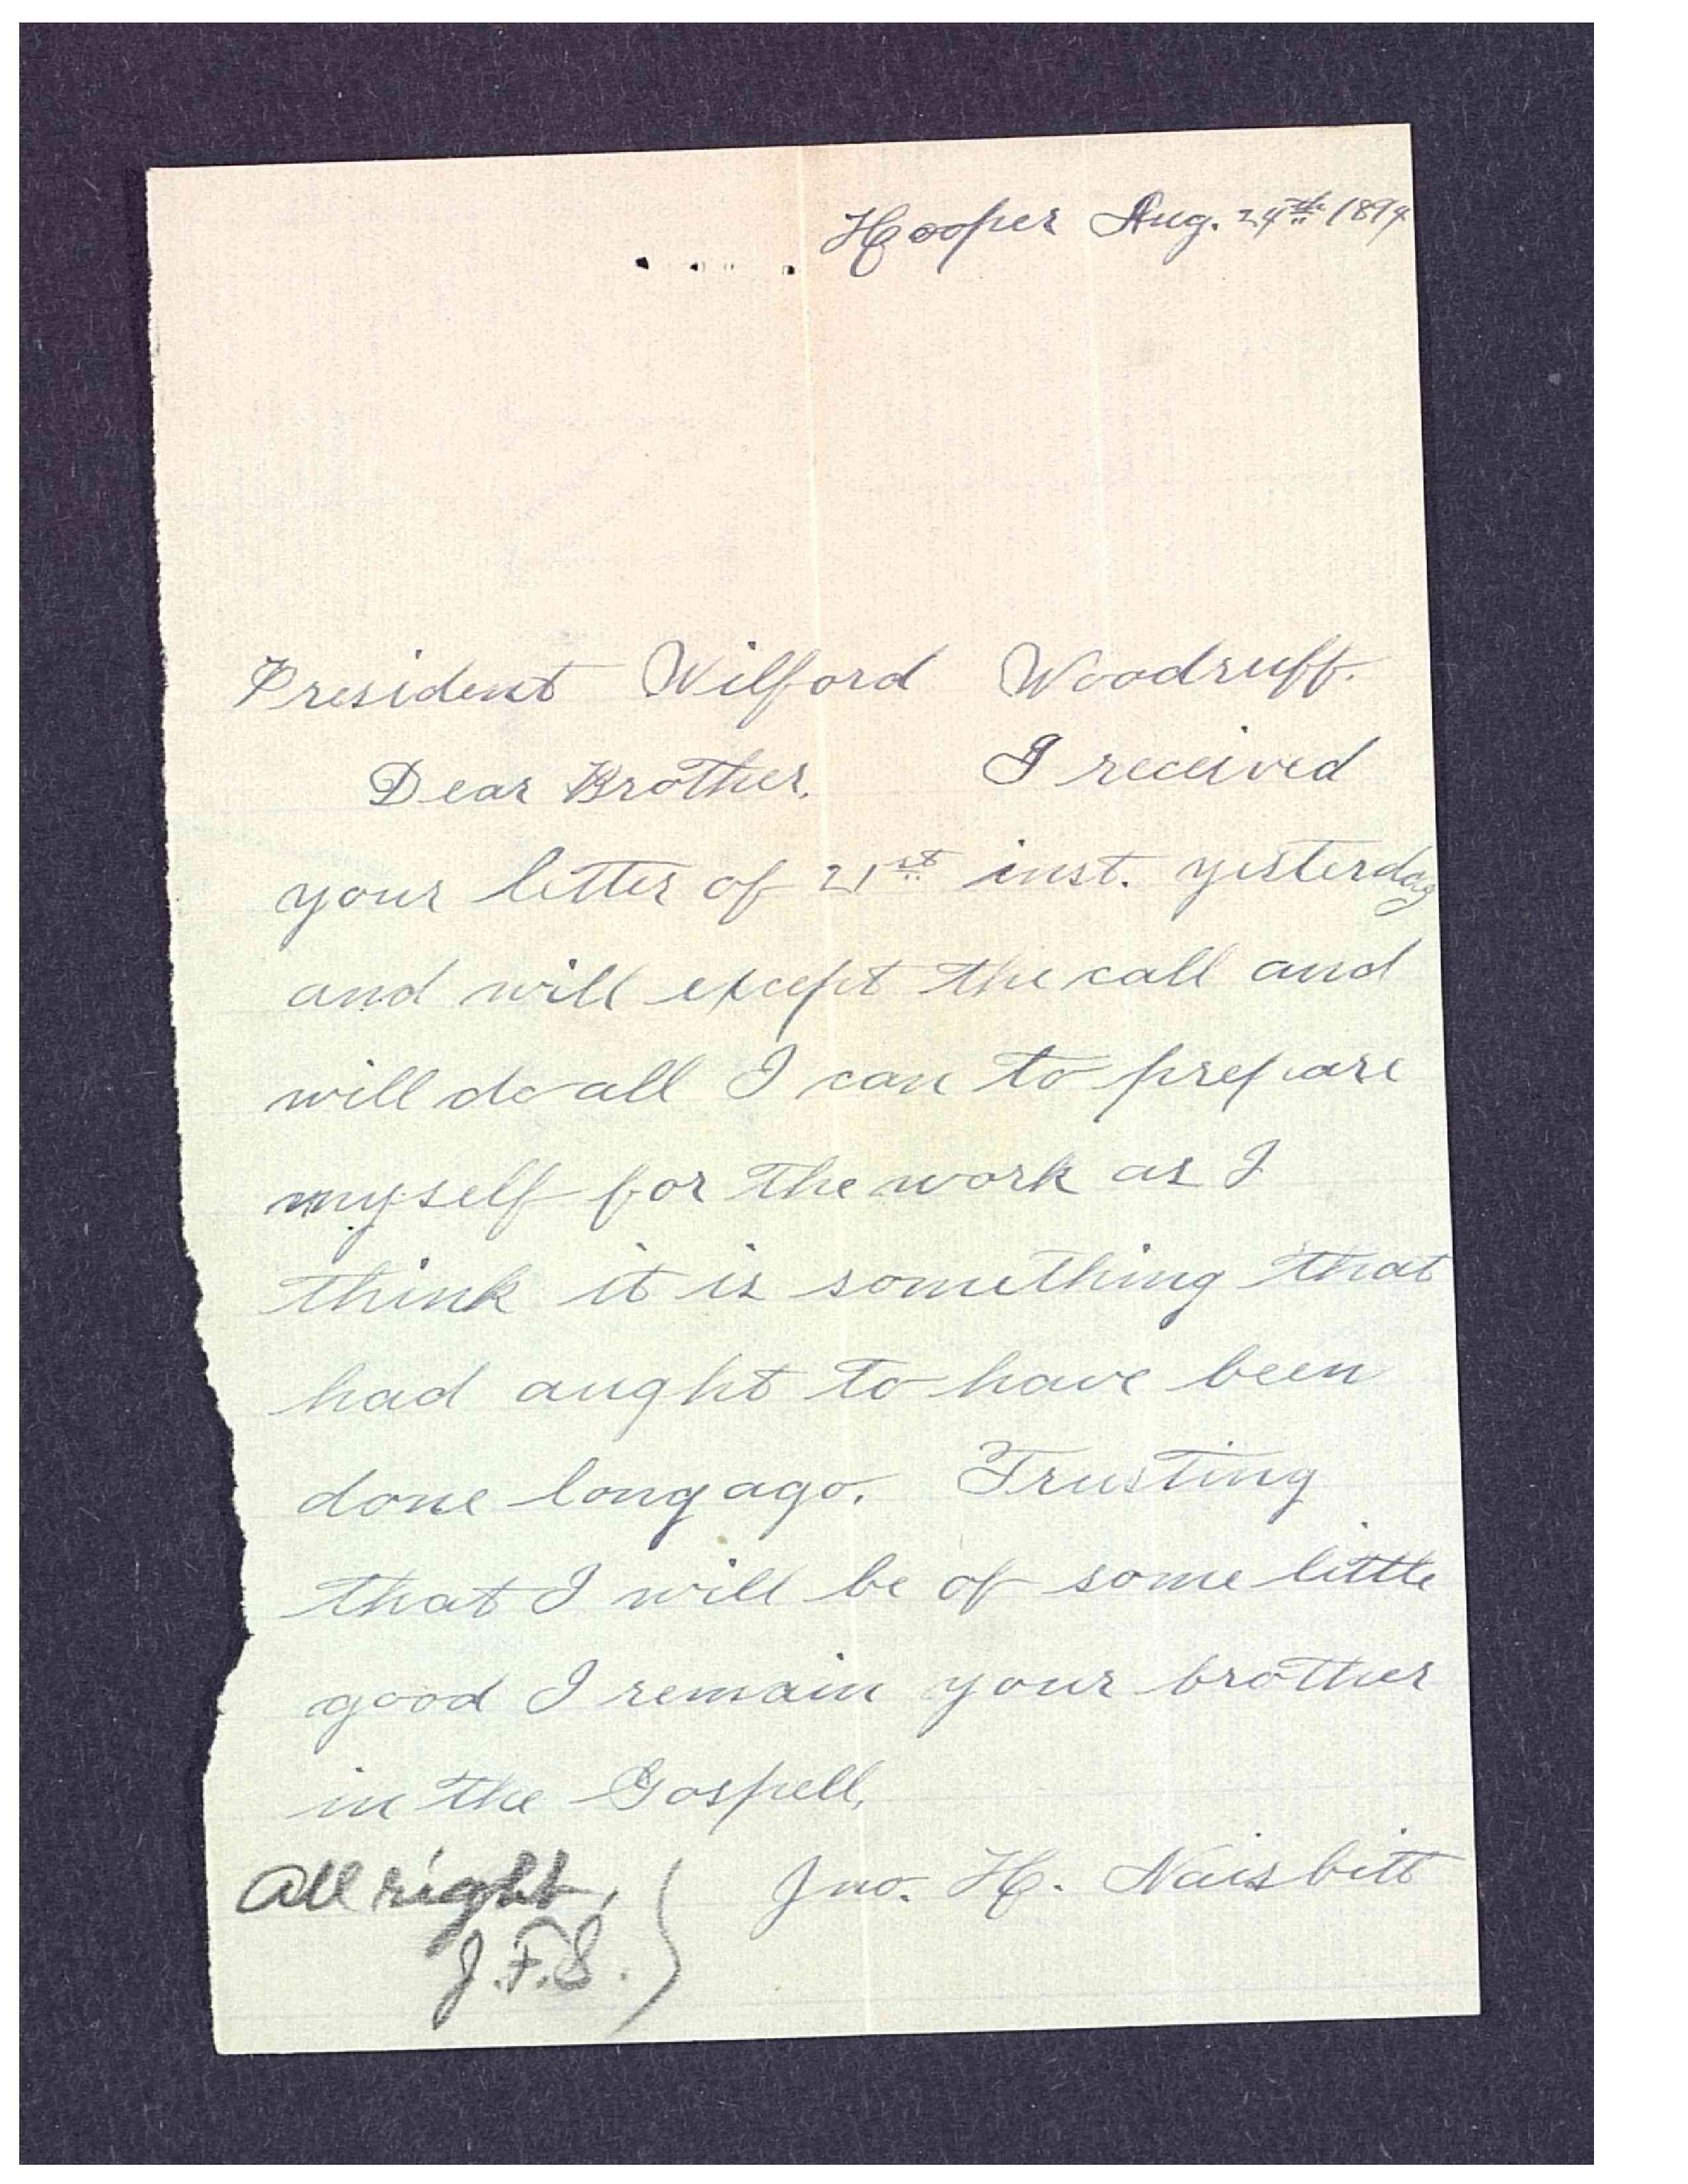 Hooper Aug. 24th 1894
President Wilford Woodruff.
Dear Brother. I received
your letter of 21st inst. yesterday
and will except the call and
will do all I can to prepare
myself for the work as I
think it is something that
had aught to have been
done long ago. Trusting
that I will be of some little
good I remain your brother
in the Gospell,
Jno. H. Naisbitt
All right,
J.F.S.